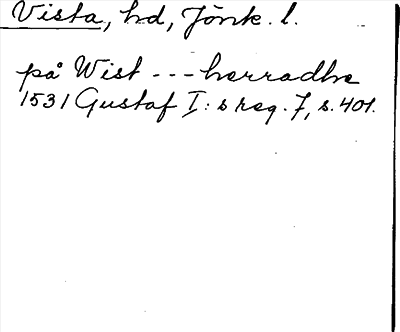 Vista, hd, Jönk. l.
på Wist --- herradhe
1531 Gustaf I:s reg. 7, s. 401.